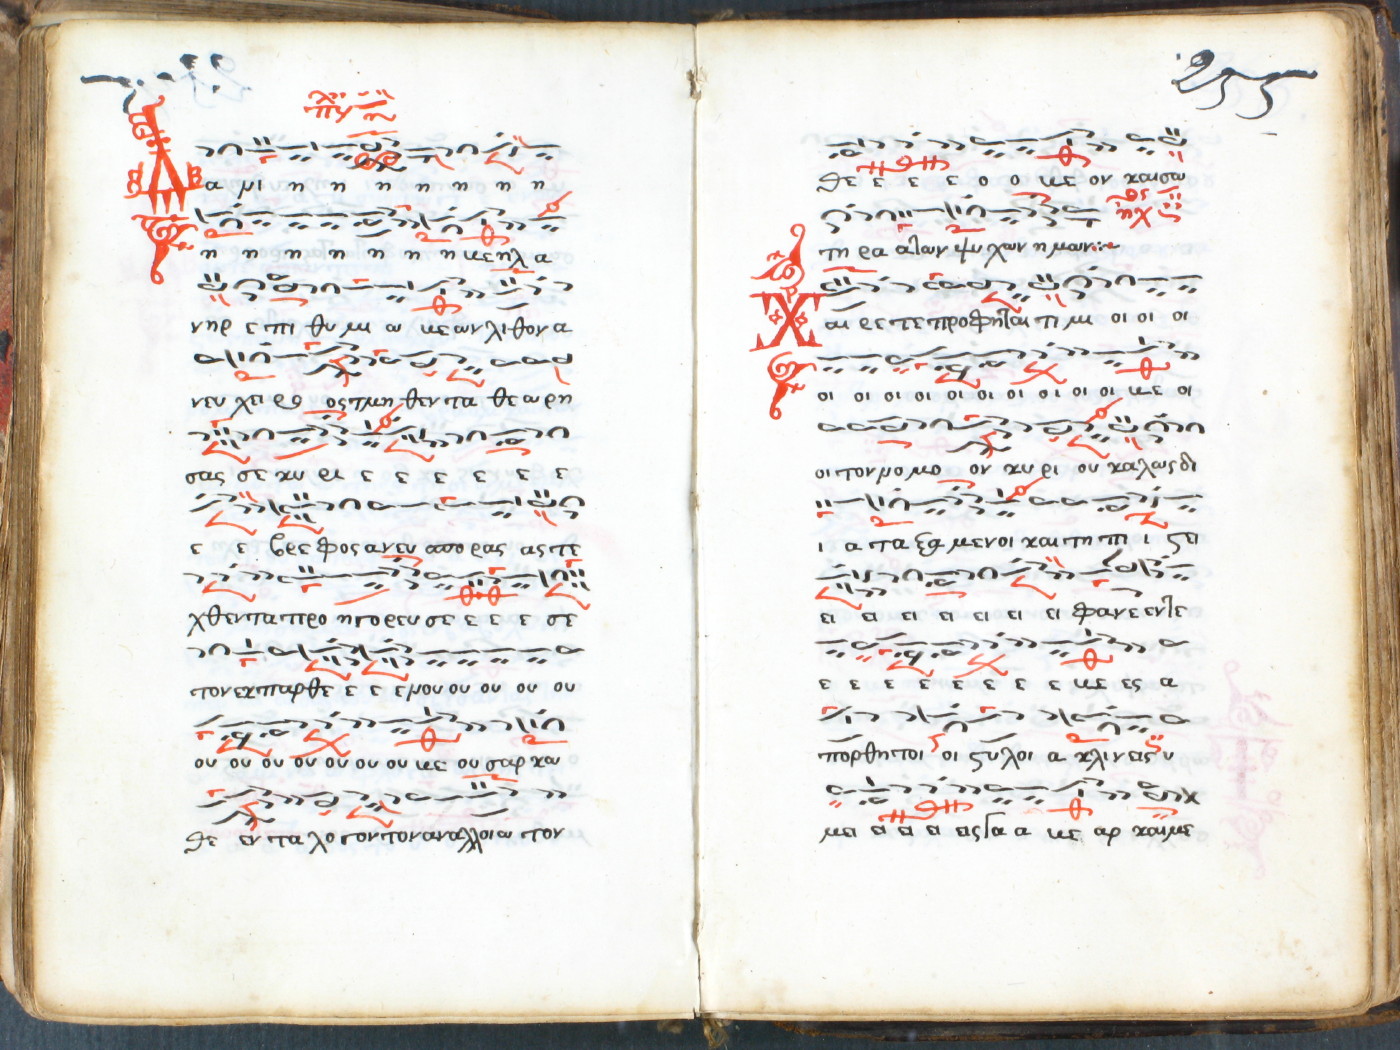 Δα μι η η η η η η η
η η η η η η η με ηλ α
νηρ ε πι θυ μι ω με ων λι θον α
νευ χει ρο ος τμη θεν τα θε ω ρη
σας σε κυ ρι ε ε ε ε ε ε
ε ε βρε φος ανευ σπο ρας ας τε
χθεν τα προ η γο ρευ σε ε ε ε σε
τον εκ παρ θε ε ε ε μου ου ου ου ου
ου ου ου ου ου ου ου με ου σαρ κω
θε εν τα λο γον τον αναλλοιω τον
255
θε ε ε ε ο ο με ον και σω
τη ρα α των ψυ χων η μων
Χαι ρε τε προφηται τι μι οι οι οι
οι οι οι οι οι οι οι οι οι οι με οι
οι τον νο μο ον κυ ρι ου κα λως δι
ι α τα ξα μενοι και τη πι ι στει
ει ει ει ει ει ει ει φανε εντε
ε ε ε ε ε ε ε ε με ες α
πορθητοι οι στυλοι α κλινεις υ
μει ει ει ει εις γα α με αρ και με